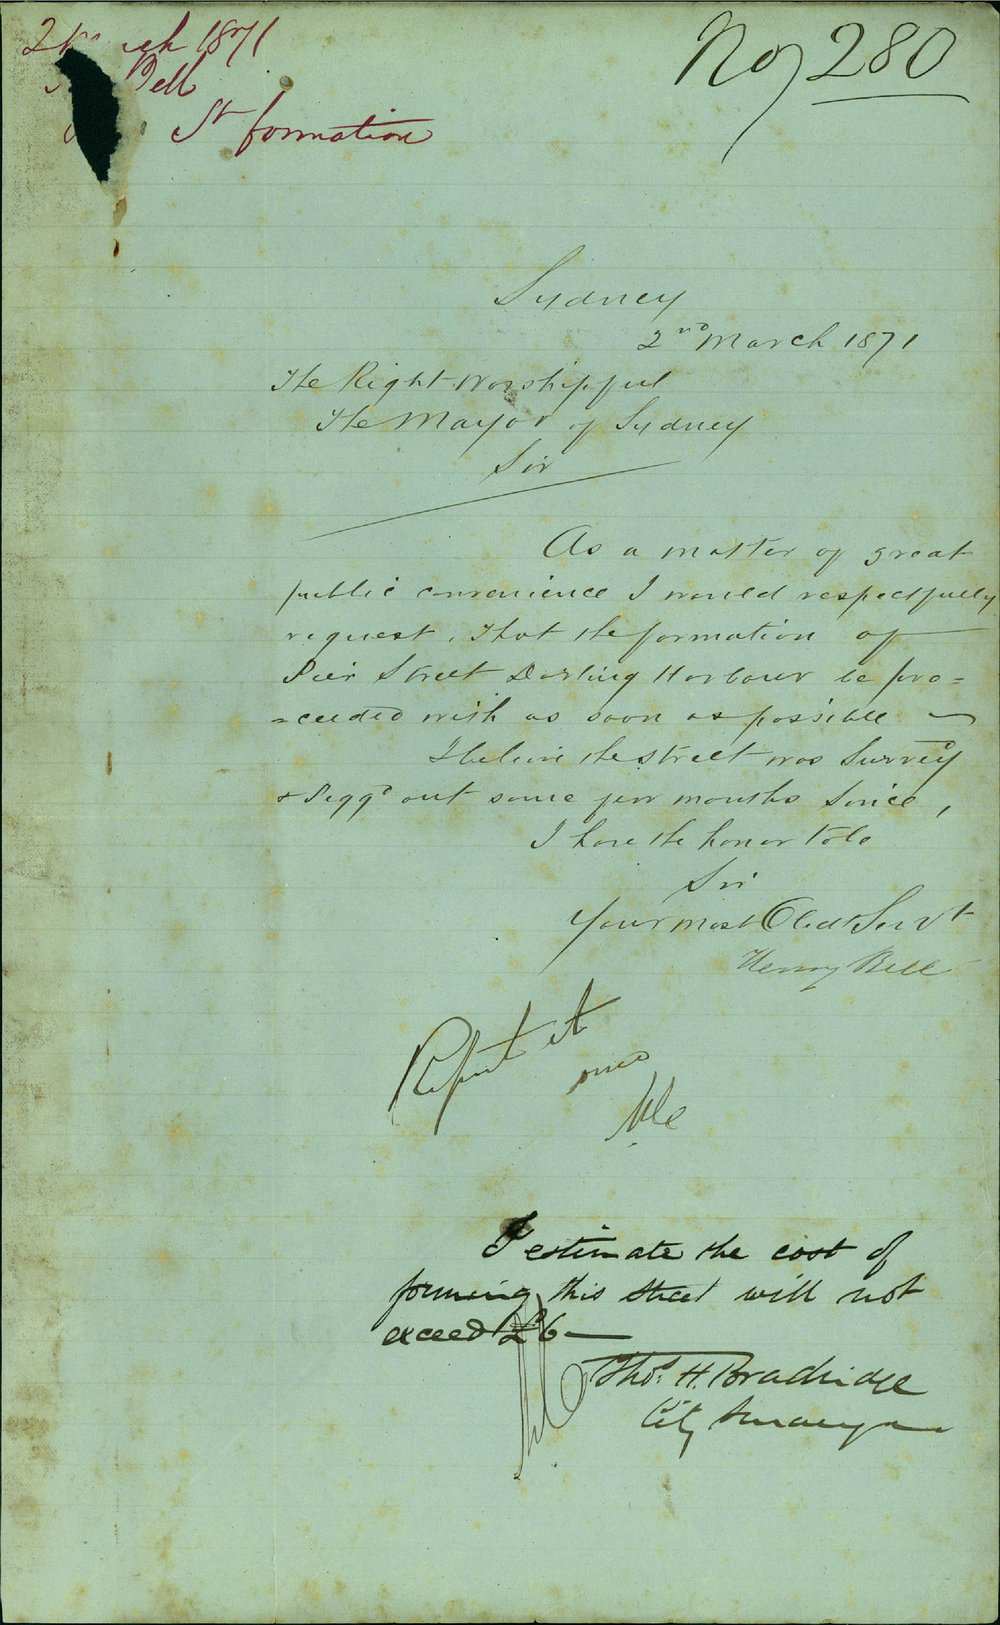 2 March 1871
Bell
St formation
No 280
Sydney
2nd March 1871
The Right Worshipful
The Mayor of Sydney
Sir
As a matter of great
public convenience I would respectfully
request, that the formation of
Pier Street Darling Harbour be pro=
=ceeded with as soon as possible —
I believe the street was Survey'd
& Pegg'd out some few months since,
I have the honor to be
Sir
Your most Obedt Servt
Henry Bell
Report at
once
I estimate the cost of
forming this street will not
exceed £6—
Thos. H. Bradridge
City Surveyor